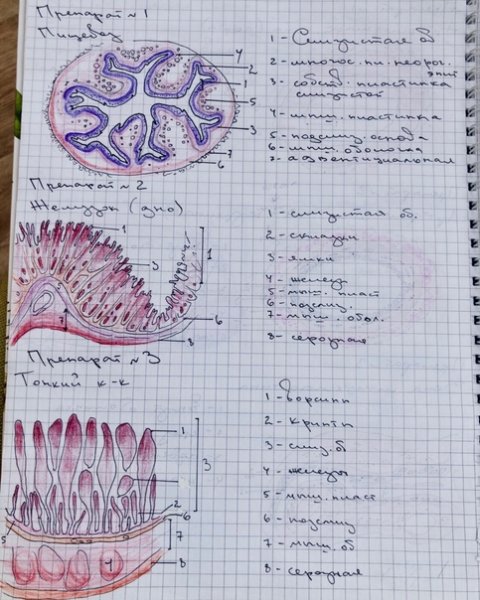 Препарат №1
Пищевод
1 - Слизистая об
2 - многос. пл. неорог. эпит
3 - собств. пластинка слизистой
4 - мыш. пластинка
5 - подслиз. основа
6 - мыш. оболочка
7 - адвентициальная
4
2
1
5
3
7
6
Препарат №2
Желудок (дно)
1 - слизистая об.
2 - складки
3 - ямки
4 - железы
5 - мыш. пласт
6 - подслиз.
7 - мыш. обол.
8 - серозная
1
3
1
6
8
Препарат №3
Тонкий к-к
1 - ворсины
2 - крипты
3 - слиз. об
4 - железы
5 - мыш. пласт
6 - подслиз
7 - мыш. об
8 - серозная
1
3
2
6
5
7
4
8